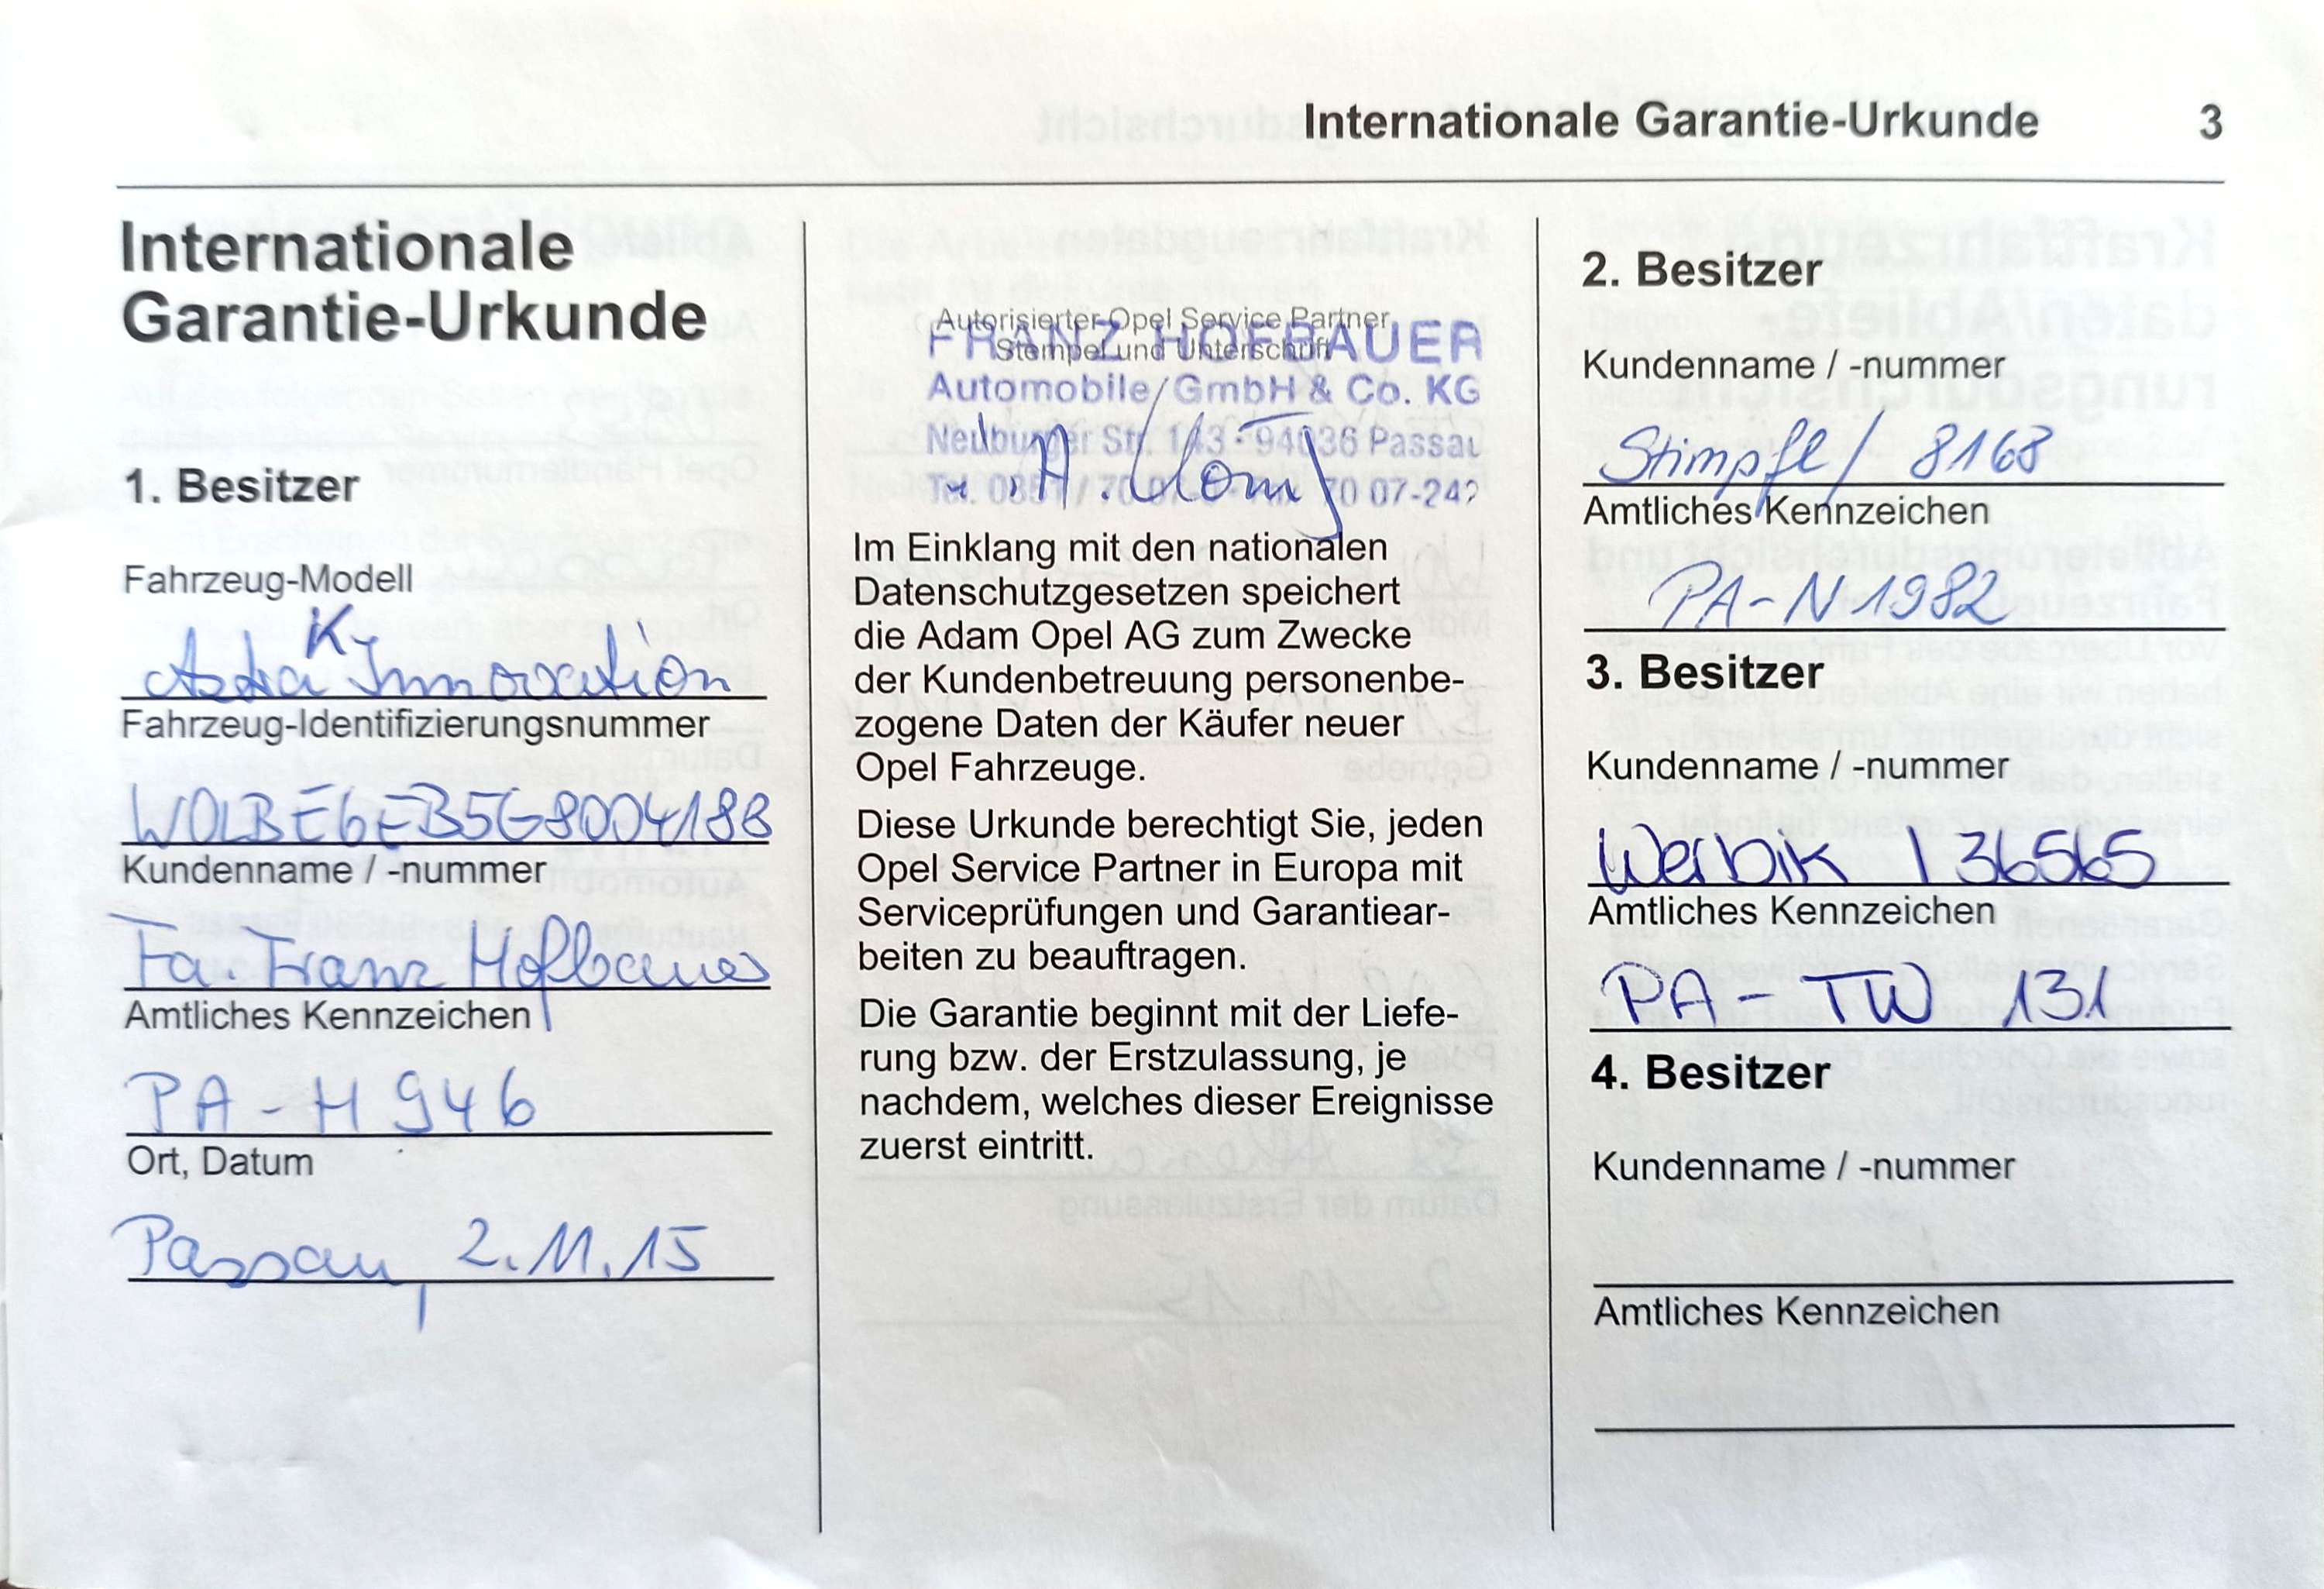 Internationale Garantie-Urkunde 3
Internationale
Garantie-Urkunde
1. Besitzer
Fahrzeug-Modell
Astra K, Innovation
Fahrzeug-Identifizierungsnummer
W0LBE6EB5G8004188
Kundenname / -nummer
Fa. Franz Hofbauer
Amtliches Kennzeichen
PA - H 946
Ort, Datum
Passau, 2.11.15
Autorisierter Opel Service Partner
Stempel und Unterschrift
FRANZ HOFBAUER
Automobile GmbH & Co. KG
Neuburger Str. 143 · 94036 Passau
Tel. 0851 / 70 07-242
Im Einklang mit den nationalen
Datenschutzgesetzen speichert
die Adam Opel AG zum Zwecke
der Kundenbetreuung personenbe-
zogene Daten der Käufer neuer
Opel Fahrzeuge.
Diese Urkunde berechtigt Sie, jeden
Opel Service Partner in Europa mit
Serviceprüfungen und Garantiear-
beiten zu beauftragen.
Die Garantie beginnt mit der Liefe-
rung bzw. der Erstzulassung, je
nachdem, welches dieser Ereignisse
zuerst eintritt.
2. Besitzer
Kundenname / -nummer
Stimpfl / 8168
Amtliches Kennzeichen
PA - N 1982
3. Besitzer
Kundenname / -nummer
Werbik / 36565
Amtliches Kennzeichen
PA - TW 131
4. Besitzer
Kundenname / -nummer
Amtliches Kennzeichen